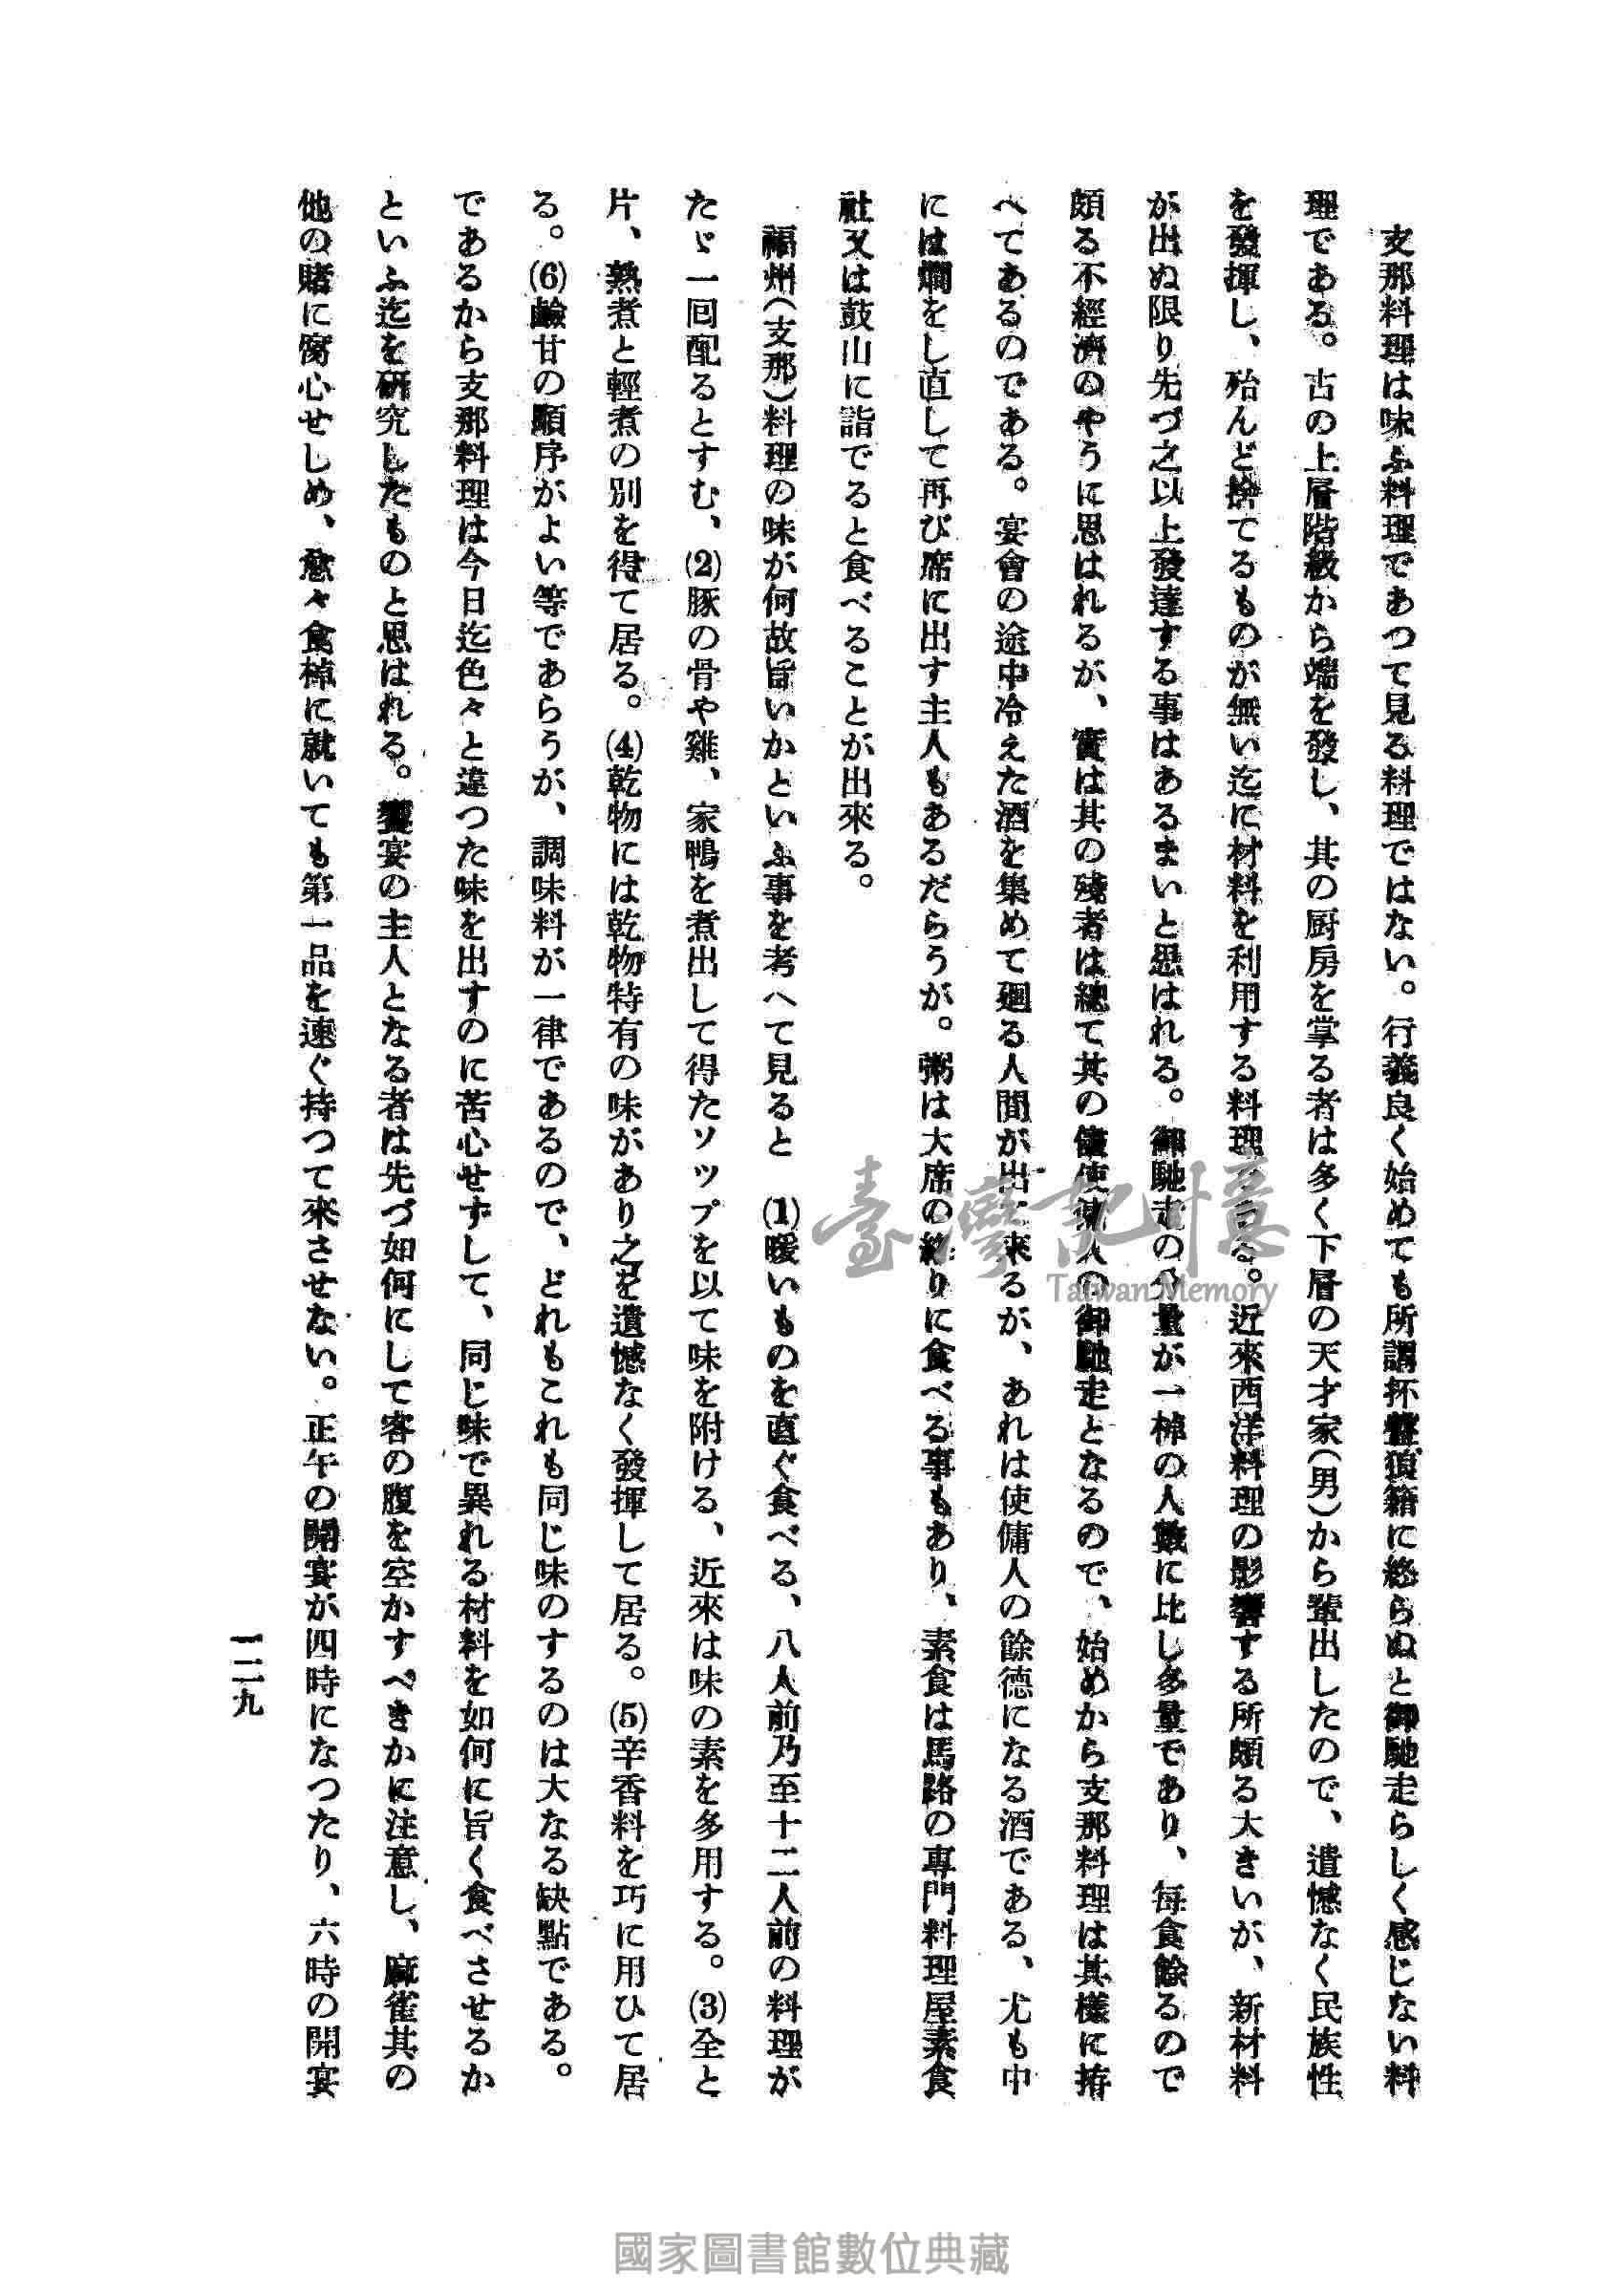 支那料理は味ふ料理であつて見る料理ではない。行義良く始めても所謂杯盤狼籍に終らぬと御馳走らしく感じない料
理である。古の上層階級から端を發し、其の厨房を掌る者は多く下層の天才家(男)から輩出したので、遺憾なく民族性
を發揮し、殆んど捨てるものが無い迄に材料を利用する料理である。近來西洋料理の影響する所頗る大きいが、新材料
が出ぬ限り先づ之以上發達する事はあるまいと思はれる。御馳走の分量が一棹の人數に比し多量であり、每食餘るので
頗る不經濟のやうに思はれるが、實は其の殘者は總て其の儘使傭人の御馳走となるので、始めから支那料理は其樣に拵
へてあるのである。宴會の途中冷えた酒を集めて廻る人間が出て來るが、あれは使傭人の餘德になる酒である、尤も中
には燗をし直して再び席に出す主人もあるだらうが。粥は大席の終りに食べる事もあり、素食は馬路の專門料理屋素食
社又は鼓山に詣でると食べることが出來る。
福州(支那)料理の味が何故旨いかといふ事を考へて見ると (1)暖いものを直ぐ食べる、八人前乃至十二人前の料理が
たゞ一回配るとすむ、(2)豚の骨や雞、家鴨を煮出して得たソツプを以て味を附ける、近來は味の素を多用する。(3)全と
片、熟煮と輕煮の別を得て居る。(4)乾物には乾物特有の味があり之を遺憾なく發揮して居る。(5)辛香料を巧に用ひて居
る。(6)鹼甘の順序がよい等であらうが、調味料が一律であるので、どれもこれも同じ味のするのは大なる缺點である。
であるから支那料理は今日迄色々と違つた味を出すのに苦心せずして、同じ味で異れる材料を如何に旨く食べさせるか
といふ迄を研究したものと思はれる。饗宴の主人となる者は先づ如何にして客の腹を空かすべきかに注意し、麻雀其の
他の賭に腐心せしめ、愈々食棹に就いても第一品を速ぐ持つて來させない。正午の開宴が四時になつたり、六時の開宴
一二九
臺灣記憶
Taiwan Memory
國家圖書館數位典藏